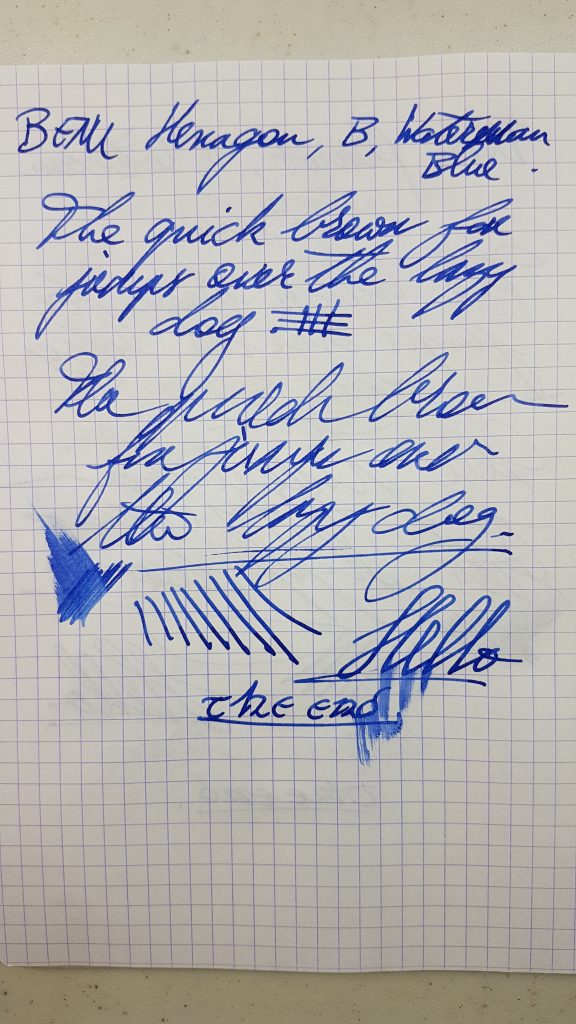 BENU Hexagon, B, Waterman
Blue.
The quick brown fox
jumps over the lazy
dog
The quick brown
fox jumps over
the lazy dog.
Hello
the end.